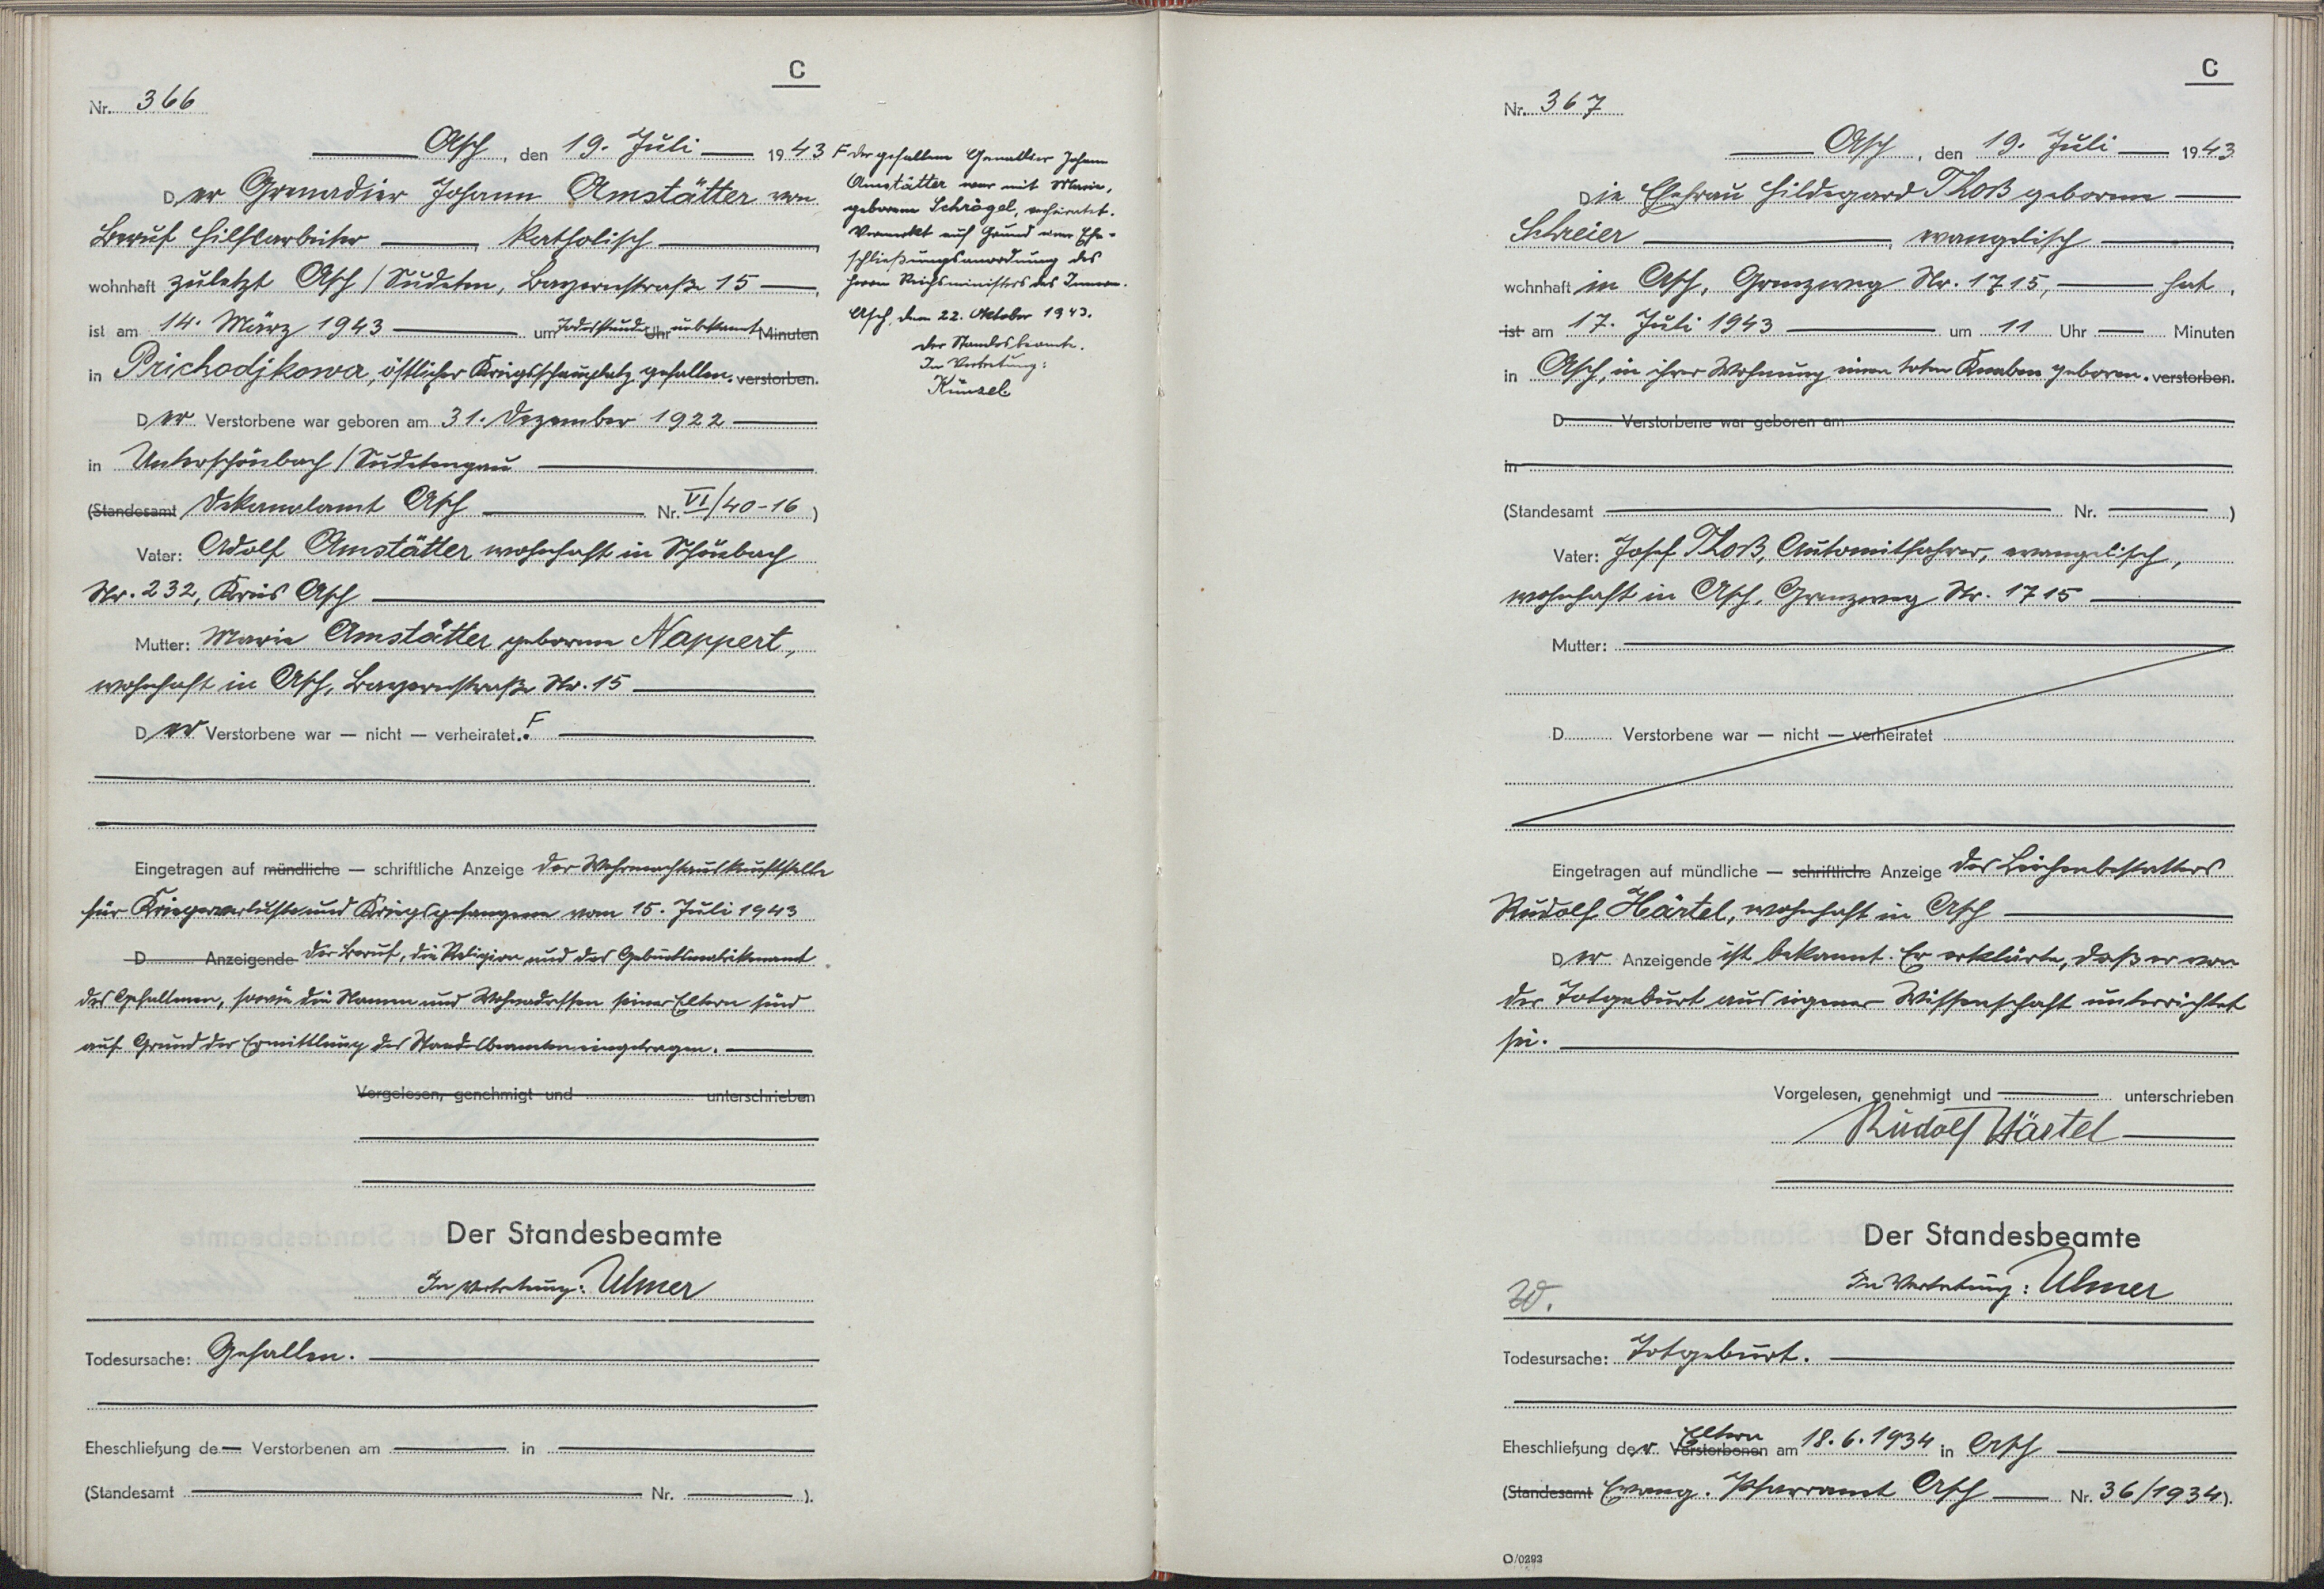 C
Nr. 366
Asch, den 19. Juli 1943
Der Grenadier Johann Amstätter von
Beruf Hilfsarbeiter, katholisch
wohnhaft zuletzt Asch/Sudeten, Bayernstraße 15,
ist am 14. März 1943 um Todesstunde Uhr unbekannt Minuten
in Prichodjkowa, östlicher Kriegsschauplatz gefallen. verstorben.
Der Verstorbene war geboren am 31. Dezember 1922
in Unterschönbach/Sudetengau
(Standesamt Dekanalamt Asch Nr. VI/40-16)
Vater: Adolf Amstätter wohnhaft in Schönbach
Nr. 232, Kreis Asch
Mutter: Marie Amstätter geborene Nappert,
wohnhaft in Asch, Bayernstraße Nr. 15
Der Verstorbene war — nicht — verheiratet. F
Eingetragen auf mündliche — schriftliche Anzeige der Wehrmachtauskunftstelle
für Kriegerverluste und Kriegsgefangene vom 15. Juli 1943
D Anzeigende Der Beruf, die Religion und das Geburtsmatrikenamt
des Gefallenen, sowie die Namen und Wohnadressen seiner Eltern sind
auf Grund der Ermittlung des Standesbeamten eingetragen.
Vorgelesen, genehmigt und unterschrieben
Der Standesbeamte
In Vertretung: Ulmer
Todesursache: Gefallen.
Eheschließung de Verstorbenen am in
(Standesamt Nr. ).
F Der gefallene Grenadier Johann
Amstätter war mit Marie,
geborene Schrögel, verheiratet.
Vermerkt auf Grund einer Ehe-
schließungsanordnung des
Herrn Reichsministers des Innern.
Asch, den 22. Oktober 1943.
Der Standesbeamte.
In Vertretung:
Künzel
C
Nr. 367
Asch, den 19. Juli 1943
Die Ehefrau Hildegard Thoß geborene
Schreier, evangelisch
wohnhaft in Asch, Grenzweg Nr. 1715, hat,
ist am 17. Juli 1943 um 11 Uhr Minuten
in Asch, in ihrer Wohnung einen toten Knaben geboren. verstorben.
D Verstorbene war geboren am
in
(Standesamt Nr. )
Vater: Josef Thoß, Automitfahrer, evangelisch,
wohnhaft in Asch, Grenzweg Nr. 1715
Mutter:
D Verstorbene war — nicht — verheiratet
Eingetragen auf mündliche — schriftliche Anzeige des Leichenbestatters
Rudolf Härtel, wohnhaft in Asch
Der Anzeigende ist bekannt. Er erklärte, daß er von
der Totgeburt aus eigener Wissenschaft unterrichtet
sei.
Vorgelesen, genehmigt und unterschrieben
Rudolf Härtel
Der Standesbeamte
W. In Vertretung: Ulmer
Todesursache: Totgeburt.
Eheschließung der Eltern Verstorbenen am 18.6.1934 in Asch
(Standesamt Evang. Pfarramt Asch Nr. 36/1934).
O/0293